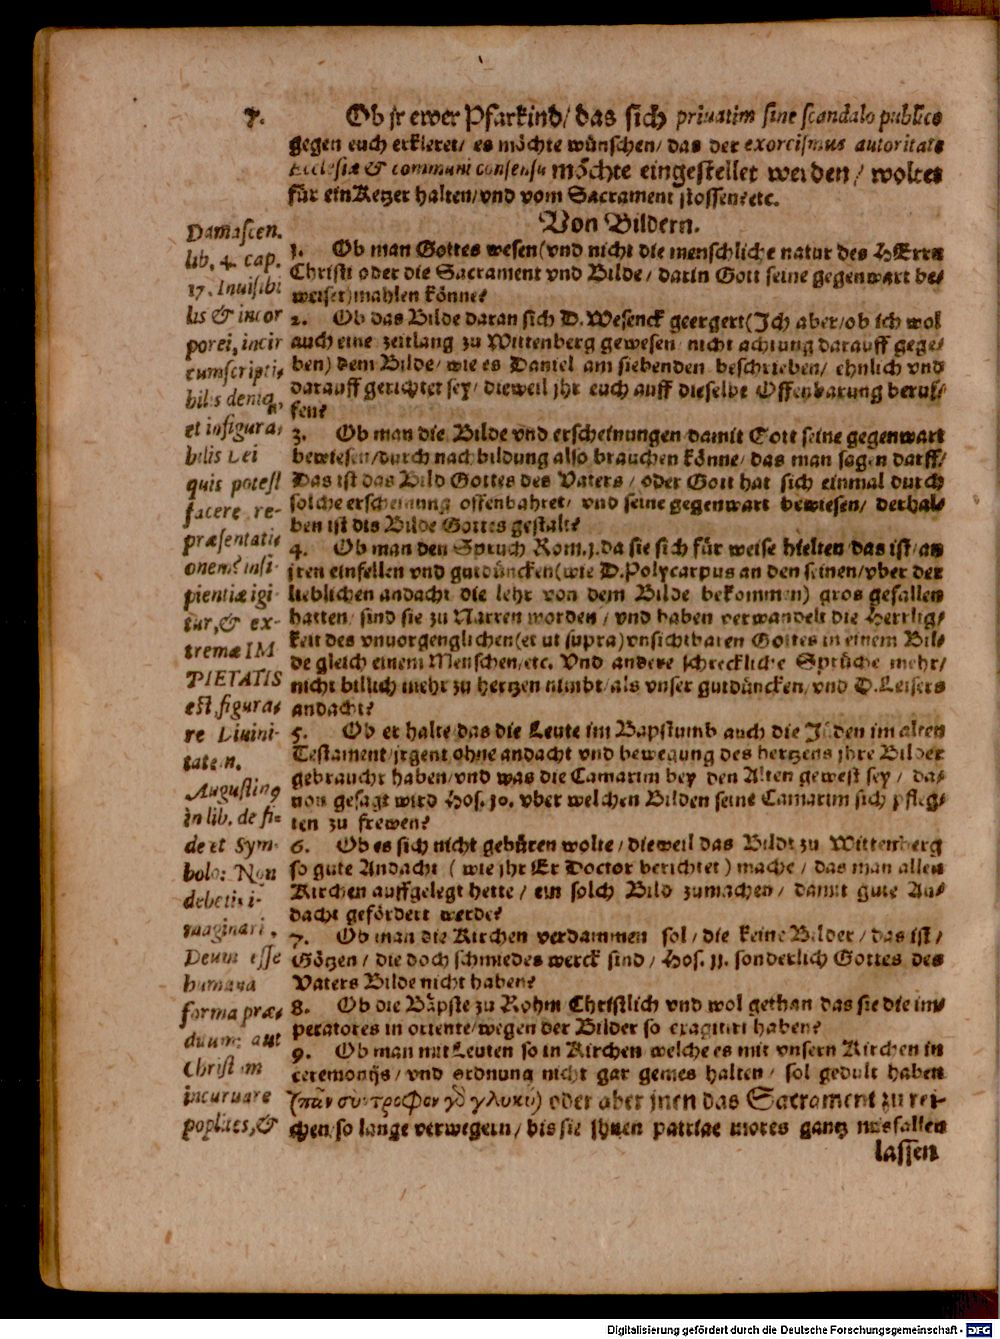 7. Ob jr ewer Pfarkind/ das sich priuatim sine scandalo publico
gegen euch erkleret/ es möchte wünschen/ das der exorcismus autoritate
Ecclesiæ & communi consensu möchte eingestellet werden/ woltet
für ein Ketzer halten/vnd vom Sacrament stossen? etc.
Von Bildern.
1. Ob man Gottes wesen(vnd nicht die menschliche natur des HErrn
Christi oder die Sacrament vnd Bilde/ darin Gott seine gegenwart be-
weiset)mahlen könne?
2. Ob das Bilde daran sich D. Wesenck geergert(Ich aber/ob ich wol
auch eine zeitlang zu Wittenberg gewesen/ nicht achtung darauff gege-
ben) dem Bilde/ wie es Daniel am siebenden beschrieben/ ehnlich vnd
darauff gerichtet sey/ dieweil jhr euch auff dieselbe Offenbarung beruf-
fen?
3. Ob man die Bilde vnd erscheinungen damit Gott seine gegenwart
bewiesen/durch nachbildung also brauchen könne/ das man sagen darff/
Das ist das Bild Gottes des Vaters/ oder Gott hat sich einmal durch
solche erscheinung offenbahret/ vnd seine gegenwart bewiesen/ derhal-
ben ist dis Bilde Gottes gestalt?
4. Ob man den Spruch Rom.1.da sie sich für weise hielten das ist/an
jren einfellen vnd gutdüncken(wie D.Polycarpus an den seinen/vber der
lieblichen andacht die lehr von dem Bilde bekommen) gros gefallen
hatten/ sind sie zu Narren worden/ vnd haben verwandelt die Herrlig-
keit des vnuorgenglichen(et ut supra)vnsichtbaren Gottes in einem Bil-
de gleich einem Menschen/etc. Vnd andere schreckliche Sprüche mehr/
nicht billich mehr zu hertzen nimbt/als vnser gutdüncken/vnd D.Leisers
andacht?
5. Ob er halte das die Leute im Bapstumb auch die Jüden im alten
Testament/jrgent ohne andacht vnd bewegung des hertzens jhre Bilder
gebraucht haben/vnd was die Camarim bey den Alten gewest sey/ da-
uon gesagt wird Hos. 10. vber welchen Bilden seine Camarim sich pfleg-
ten zu frewen?
6. Ob es sich nicht gebüren wolte/dieweil das Bildt zu Wittenberg
so gute Andacht (wie jhr Er Doctor berichtet) mache/ das man allen
Kirchen auffgelegt hette/ ein solch Bild zumachen/ damit gute An-
dacht gefördert werde?
7. Ob man die Kirchen verdammen sol/die keine Bilder/das ist/
Götzen/ die doch schmiedes werck sind/ Hos. 11. sonderlich Gottes des
Vaters Bilde nicht haben?
8. Ob die Bäpste zu Rohm Christlich vnd wol gethan das sie die im-
peratores in oriente/wegen der Bilder so exagitirt haben?
9. Ob man mit Leuten so in Kirchen welche es mit vnsern Kirchen in
ceremonijs/ vnd ordnung nicht gar gemes halten/ sol gedult haben
(πᾶν σύντροφον γὸ γλυκύ) oder aber jnen das Sacrament zu rei-
chen/so lange verwegern/ bis sie jhnen patriae mores gantz misfallen
lassen
Damascen.
lib. 4. cap.
17. Inuisibi
lis & incor
porei, incir
cumscripti-
bilis deniq;
et infigura-
bilis Dei
quis potest
facere re-
præsentati-
onem? insi-
pientiæ igi-
tur, & ex-
tremæ IM
PIETATIS
est, figura-
re Diuini-
tatem.
Augustinꝰ
in lib. de fi-
de et Sym-
bolo: Non
debetis i-
maginari,
Deum esse
humana
forma præ-
ditum: aut
Christum
incuruare
poplites, &
Digitalisierung gefördert durch die Deutsche Forschungsgemeinschaft - DFG